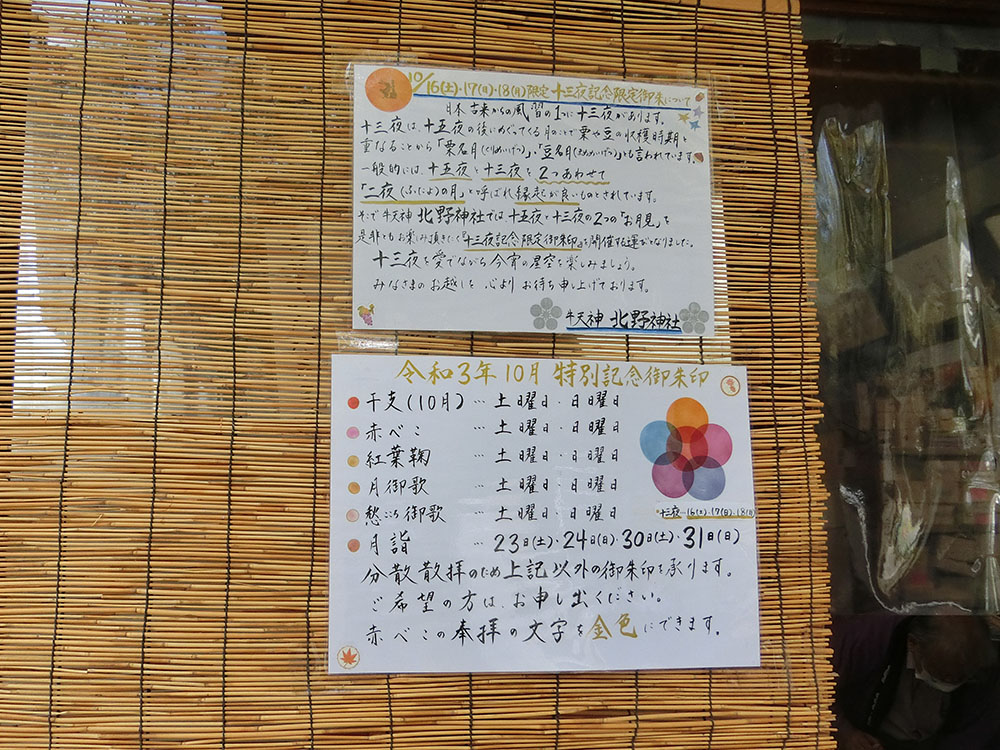 10/16(土)・17(日)・18(月)限定 十三夜記念限定御朱印について
日本古来からの風習の1つに十三夜があります。
十三夜は、十五夜の後にめぐってくる月のことで栗や豆の収穫時期と
重なることから「栗名月(くりめいげつ)」、「豆名月(まめめいげつ)」とも言われています。
一般的には、十五夜と十三夜を2つあわせて
「二夜(ふたよ)の月」と呼ばれ縁起が良いものとされています。
そこで牛天神 北野神社では十五夜と十三夜の2つの「お月見」を
是非ともお楽しみ頂きたく『十三夜記念限定御朱印』を開催する運びとなりました。
十三夜を愛でながら今宵の星空を楽しみましょう。
みなさまのお越しを 心よりお待ち申し上げております。
牛天神 北野神社
令和3年10月 特別記念御朱印
干支(10月) … 土曜日・日曜日
赤べこ … 土曜日・日曜日
紅葉鞠 … 土曜日・日曜日
月御歌 … 土曜日・日曜日
愁こち御歌 … 土曜日・日曜日
十三夜…16(土)・17(日)・18(月)
月詣 … 23日(土)・24日(日)・30日(土)・31日(日)
分散散拝のため上記以外の御朱印を承ります。
ご希望の方は、お申し出ください。
赤べこの奉拝の文字を金色にできます。